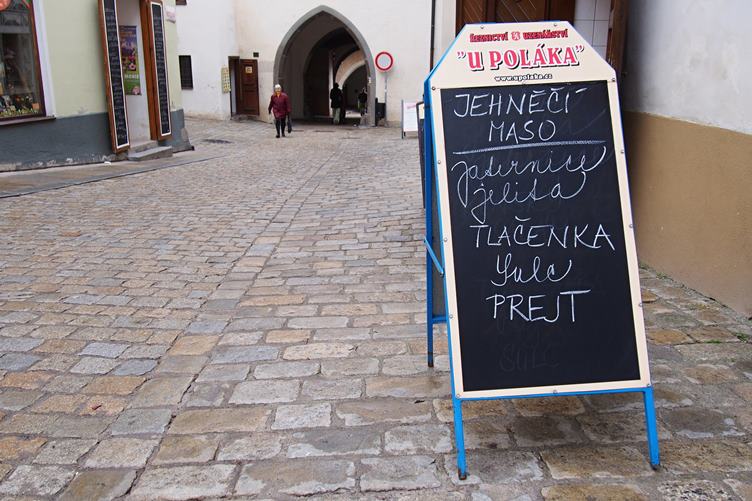 ŘEZNICTVÍ UZENÁŘSTVÍ
"U POLÁKA"
www.upolaka.cz
JEHNĚČÍ
MASO
jaternice
jelita
TLAČENKA
Sulc
PREJT
SULC